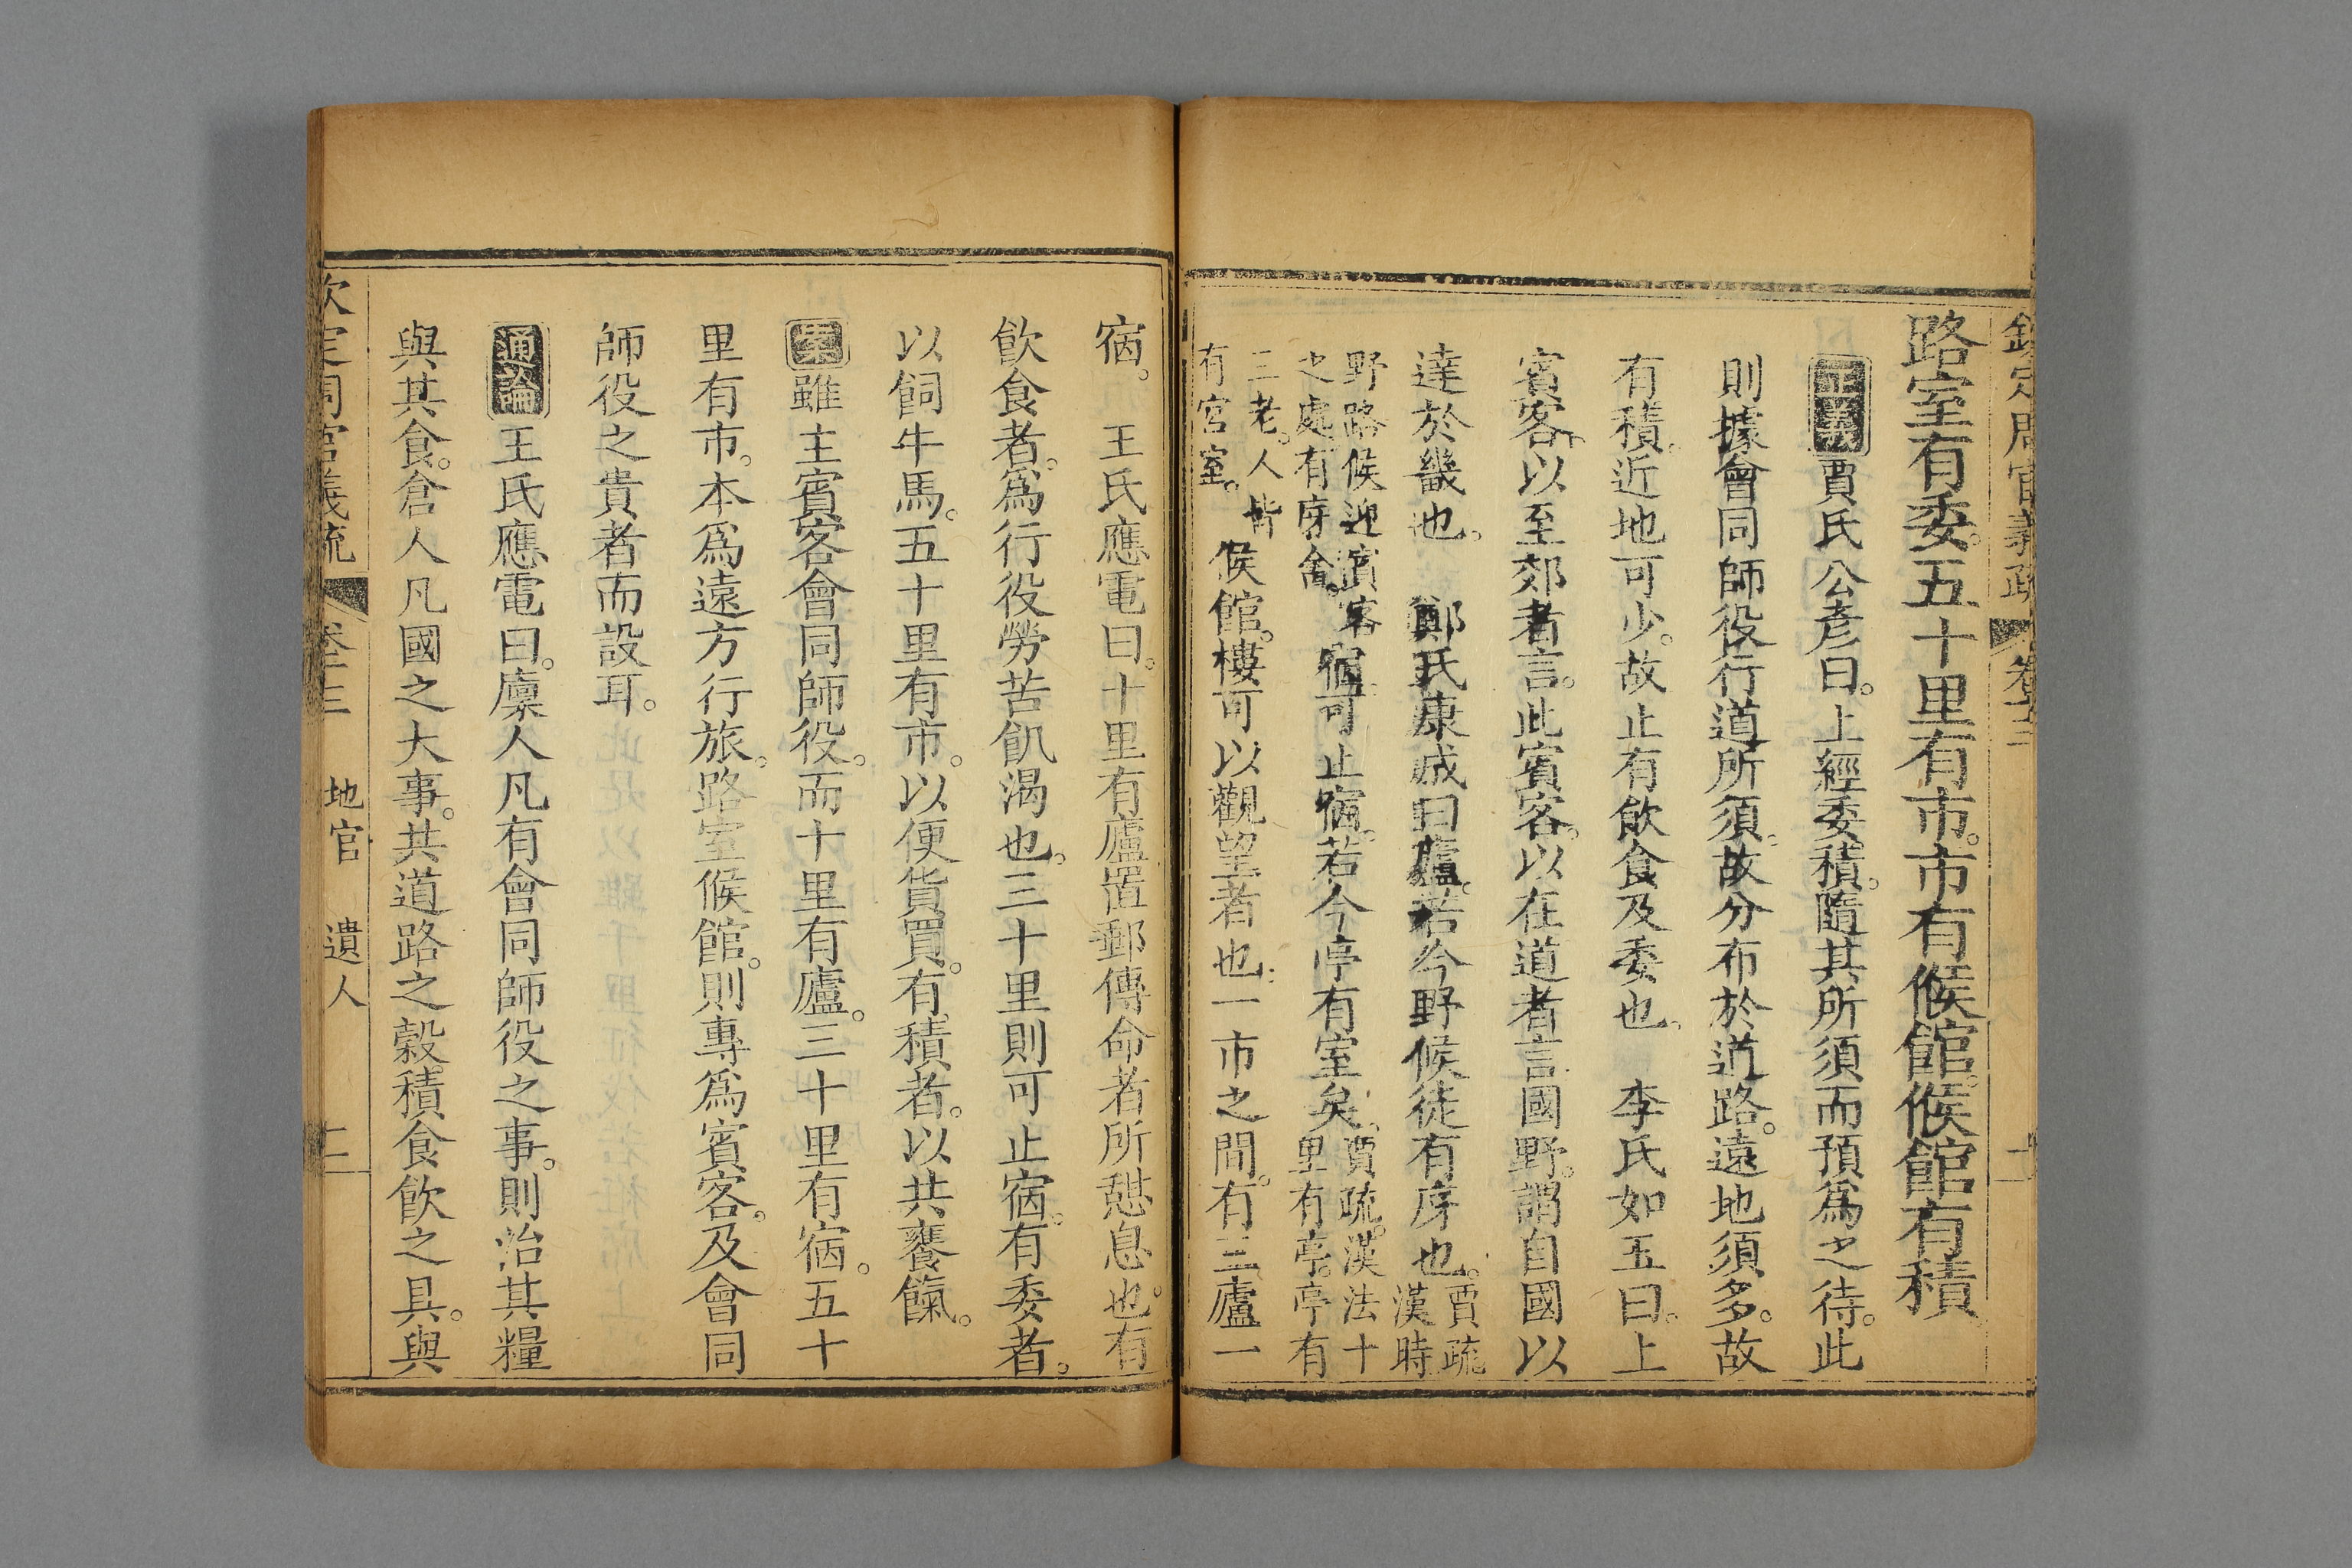 欽定周官義疏 卷十三 二
路室有委。五十里有市。市有候館。候館有積。
正義賈氏公彥曰。上經委積。隨其所須而預爲之待。此
則據會同師役行道所須。故分布於道路。遠地須多。故
有積。近地可少。故止有飲食及委也。 李氏如玉曰。上
賓客。以至郊者言。此賓客。以在道者言。國野。謂自國以
達於畿也。 鄭氏康成曰。廬。若今野候徒有庌也。賈疏漢時
野路候迎賓客之處有庌舍。宿可止宿。若今亭有室矣。賈疏。漢法十里有亭。亭有
三老。人皆有宮室。候館。樓可以觀望者也。一市之間。有三廬一
宿。 王氏應電曰。十里有廬。置郵傳命者所憩息也。有
飲食者。爲行役勞苦飢渴也。三十里則可止宿。有委者。
以飼牛馬。五十里有市。以便貨買。有積者。以共饔餼。
案雖主賓客會同師役。而十里有廬。三十里有宿。五十
里有市。本爲遠方行旅。路室候館。則專爲賓客。及會同
師役之貴者而設耳。
通論王氏應電曰。廩人凡有會同師役之事。則治其糧
與其食。倉人凡國之大事。共道路之穀積食飲之具。與
欽定周官義疏 卷十三 地官 遺人 二